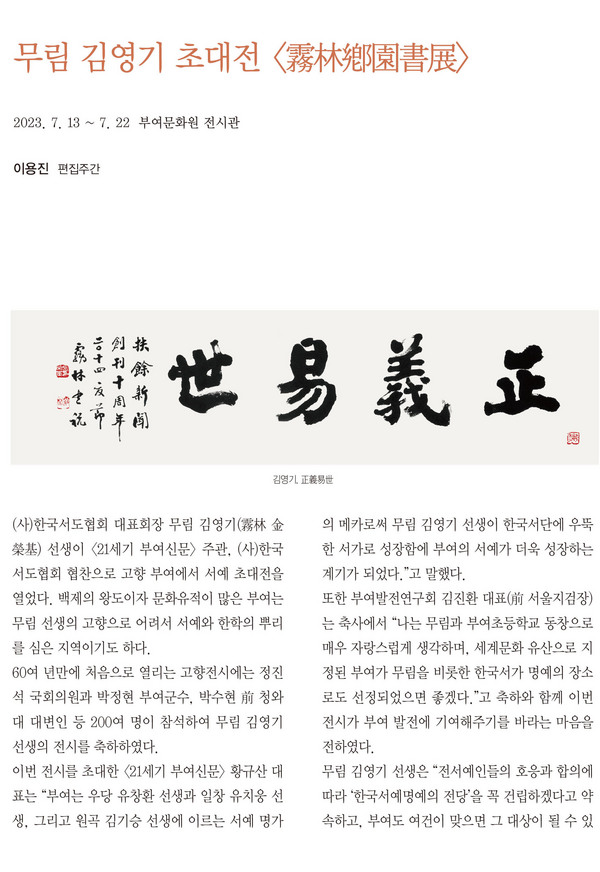 무림 김영기 초대전 〈霧林鄕園書展〉
2023. 7. 13 ~ 7. 22 부여문화원 전시관
이용진 편집주간
正義易世
扶餘新聞
創刊十周年
二〇十四夏節
霧林
김영기, 正義易世
(사)한국서도협회 대표회장 무림 김영기(霧林 金
榮基) 선생이 〈21세기 부여신문〉 주관, (사)한국
서도협회 협찬으로 고향 부여에서 서예 초대전을
열었다. 백제의 왕도이자 문화유적이 많은 부여는
무림 선생의 고향으로 어려서 서예와 한학의 뿌리
를 심은 지역이기도 하다.
60여 년만에 처음으로 열리는 고향전시에는 정진
석 국회의원과 박정현 부여군수, 박수현 前 청와
대 대변인 등 200여 명이 참석하여 무림 김영기
선생의 전시를 축하하였다.
이번 전시를 초대한 〈21세기 부여신문〉 황규산 대
표는 “부여는 우당 유창환 선생과 일창 유치웅 선
생, 그리고 원곡 김기승 선생에 이르는 서예 명가
의 메카로써 무림 김영기 선생이 한국서단에 우뚝
한 서가로 성장함에 부여의 서예가 더욱 성장하는
계기가 되었다.”고 말했다.
또한 부여발전연구회 김진환 대표(前 서울지검장)
는 축사에서 “나는 무림과 부여초등학교 동창으로
매우 자랑스럽게 생각하며, 세계문화 유산으로 지
정된 부여가 무림을 비롯한 한국서가 명예의 장소
로도 선정되었으면 좋겠다.”고 축하와 함께 이번
전시가 부여 발전에 기여해주기를 바라는 마음을
전하였다.
무림 김영기 선생은 “전서예인들의 호응과 합의에
따라 ‘한국서예명예의 전당’을 꼭 건립하겠다고 약
속하고, 부여도 여건이 맞으면 그 대상이 될 수 있